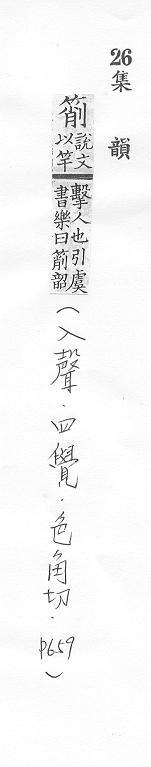 26集韻
箾說文以竿
擊人也引虞書樂曰箾韶
(入聲．四覺．色角切．p659)